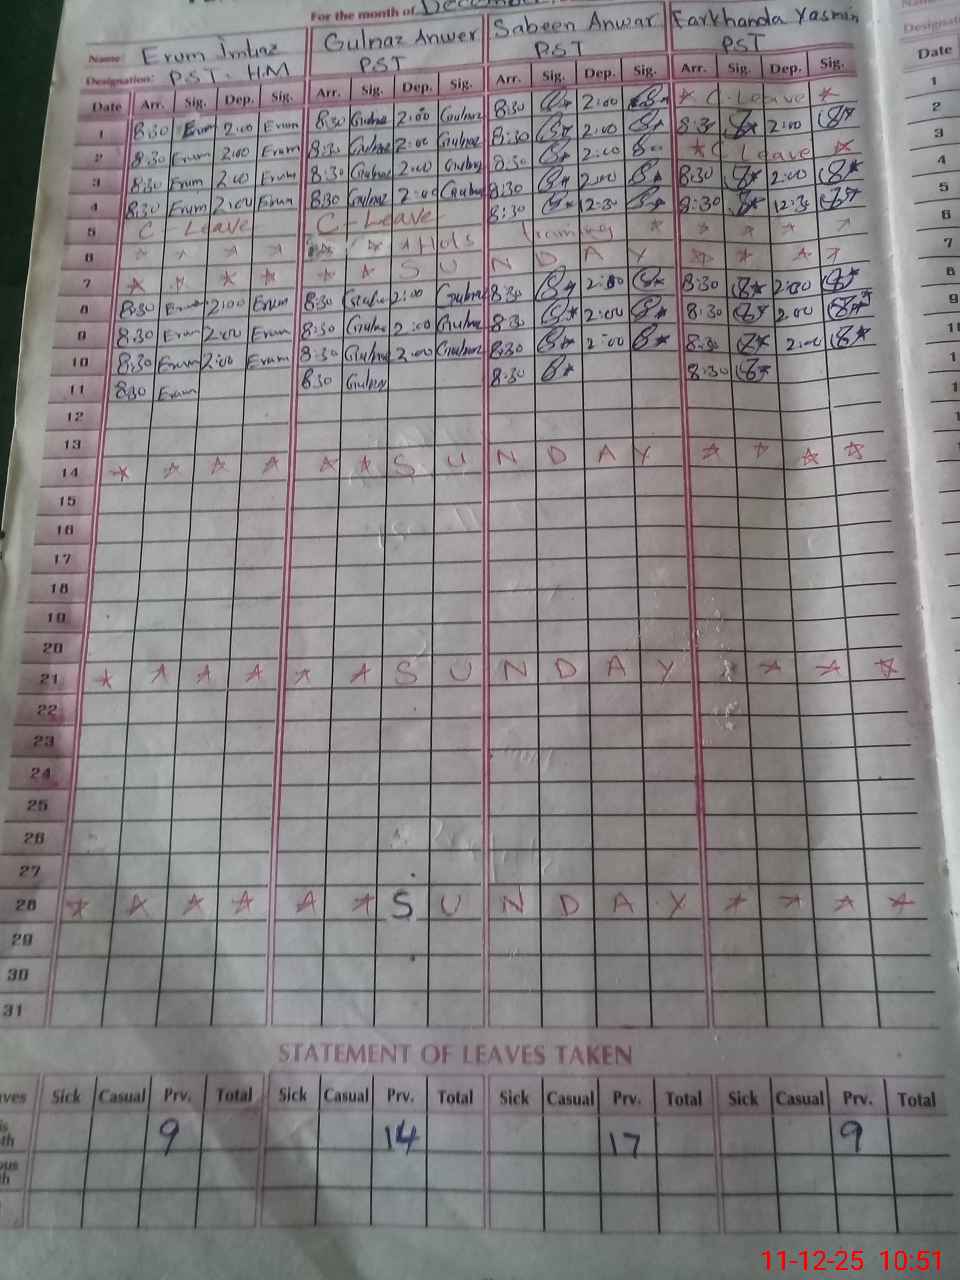 For the month of December
Name Erum Imtiaz Gulnaz Anwer Sabeen Anwar Farkhanda Yasmin
Designation: PST. H.M PST PST PST
Date Arr. Sig. Dep. Sig. Arr. Sig. Dep. Sig. Arr. Sig. Dep. Sig. Arr. Sig. Dep. Sig.
1 8:30 Erum 2:00 Erum 8:30 Gulnaz 2:00 Gulnaz 8:30 2:00 C-Leave
2 8:30 Erum 2:00 Erum 8:30 Gulnaz 2:00 Gulnaz 8:30 2:00 8:30 2:00
3 8:30 Erum 2:00 Erum 8:30 Gulnaz 2:00 Gulnaz 8:30 2:00 C Leave
4 8:30 Erum 2:00 Erum 8:30 Gulnaz 2:00 Gulnaz 8:30 2:00 8:30 2:00
5 C - Leave C - Leave 8:30 12:30 8:30 12:30
6 training
7 S U N D A Y
8 8:30 Erum 2:00 Erum 8:30 Gulnaz 2:00 Gulnaz 8:30 2:00 8:30 2:00
9 8:30 Erum 2:00 Erum 8:30 Gulnaz 2:00 Gulnaz 8:30 2:00 8:30 2:00
10 8:30 Erum 2:00 Erum 8:30 Gulnaz 2:00 Gulnaz 8:30 2:00 8:30 2:00
11 8:30 Erum 8:30 Gulnaz 8:30 8:30
12
13
14 S U N D A Y
15
16
17
18
19
20
21 S U N D A Y
22
23
24
25
26
27
28 S U N D A Y
29
30
31
STATEMENT OF LEAVES TAKEN
Sick Casual Prv. Total Sick Casual Prv. Total Sick Casual Prv. Total Sick Casual Prv. Total
9 14 17 9
Designati
Date
1
2
3
4
5
6
7
8
9
11-12-25 10:51